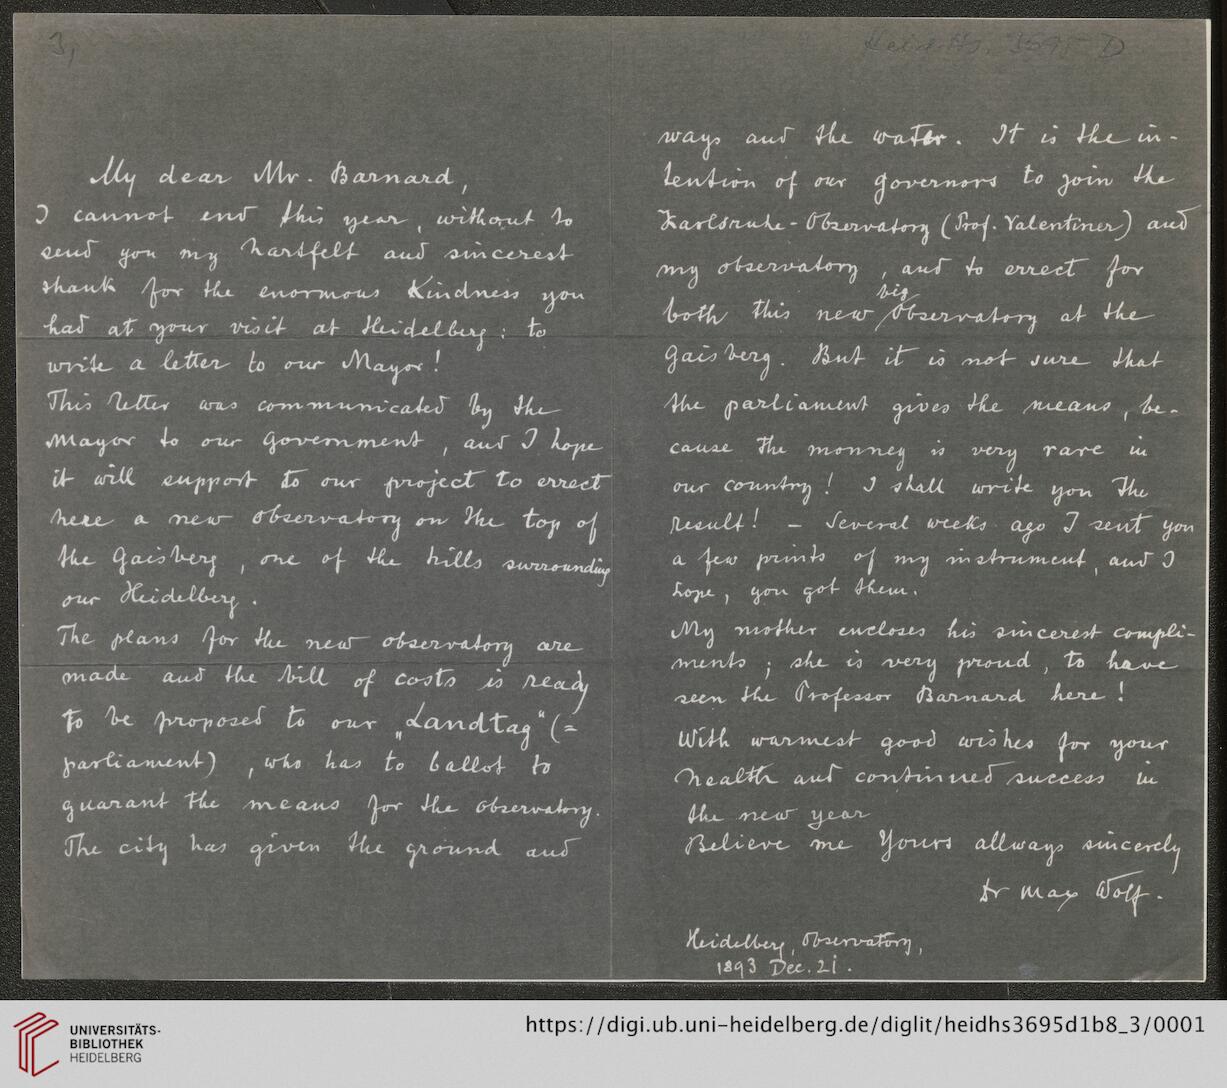 3,
Heid. Hs. 3695 D
My dear Mr. Barnard,
I cannot end this year, without to
send you my hartfelt and sincerest
thank for the enormous Kindness you
had at your visit at Heidelberg: to
write a letter to our Mayor!
This letter was communicated by the
Mayor to our government, and I hope
it will support to our project to errect
here a new observatory on the top of
the Gaisberg, one of the hills surrounding
our Heidelberg.
The plans for the new observatory are
made and the bill of costs is ready
to be proposed to our „Landtag“ (=
parliament), who has to ballot to
guarant the means for the observatory.
The city has given the ground and
ways and the water. It is the in-
tention of our governors to join the
Karlsruhe-Observatory (Prof. Valentiner) and
my observatory, and to errect for
both this new big Observatory at the
Gaisberg. But it is not sure that
the parliament gives the means, be-
cause the monney is very rare in
our country! I shall write you the
result! — Several weeks ago I sent you
a few prints of my instrument, and I
hope, you got them.
My mother encloses his sincerest compli-
ments; she is very proud, to have
seen the Professor Barnard here!
With warmest good wishes for your
health and continued success in
the new year
Believe me Yours allways sincerely
Dr Max Wolf.
Heidelberg, Observatory,
1893 Dec. 21.
UNIVERSITÄTS-
BIBLIOTHEK
HEIDELBERG
https://digi.ub.uni-heidelberg.de/diglit/heidhs3695d1b8_3/0001